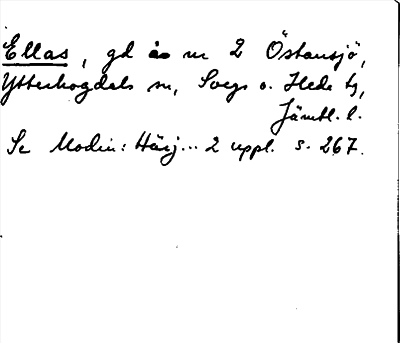 Ellas, gd å nr 2 Östansjö,
Ytterhogdals sn, Svegs o. Hede tg,
Jämtl. l.
Se Modin: Härj... 2 uppl. s. 267.